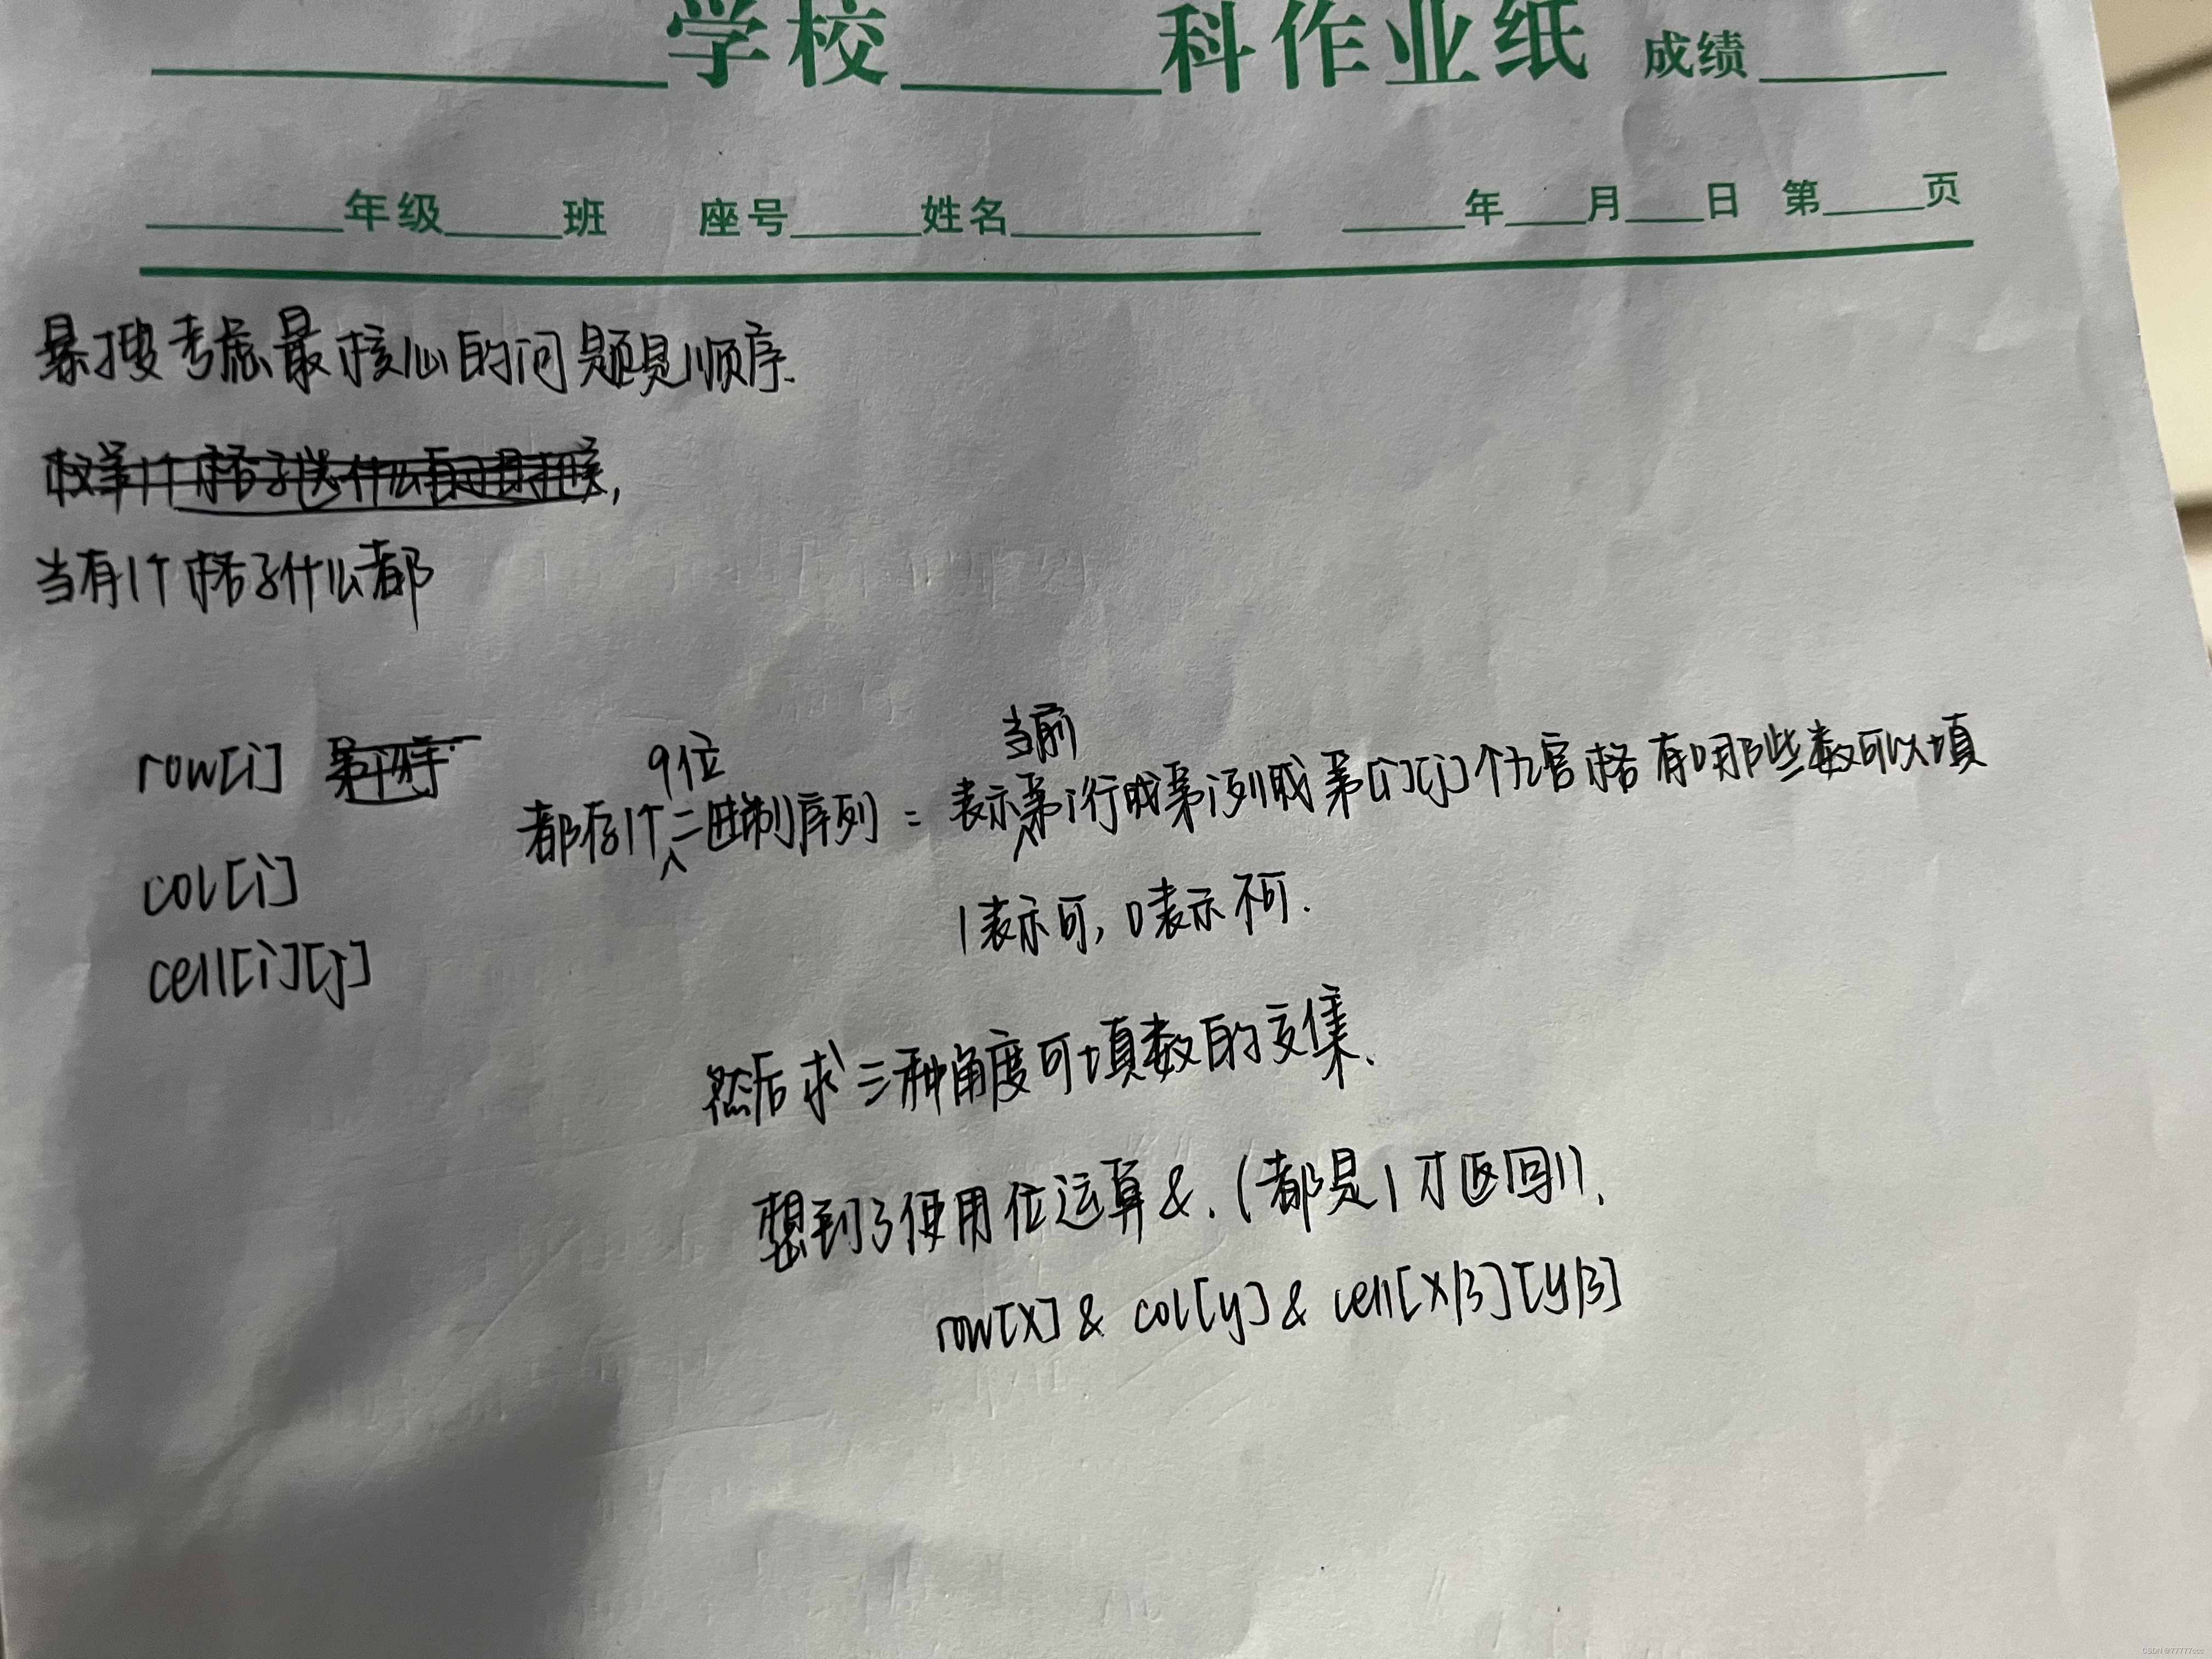 学校 科作业纸 成绩
年级 班 座号 姓名 年 月 日 第 页
暴搜考虑最核心的问题是顺序.
当有1个格子什么都
row[i]
9位
当前
都存1个二进制序列 = 表示第i行或第i列或第[i][j]个九宫格有哪些数可以填
col[i]
1表示可, 0表示不可.
cell[i][j]
然后求三种角度可填数的交集.
想到了使用位运算&. (都是1才返回1).
row[x] & col[y] & cell[x/3][y/3]
CSDN @77777ccc